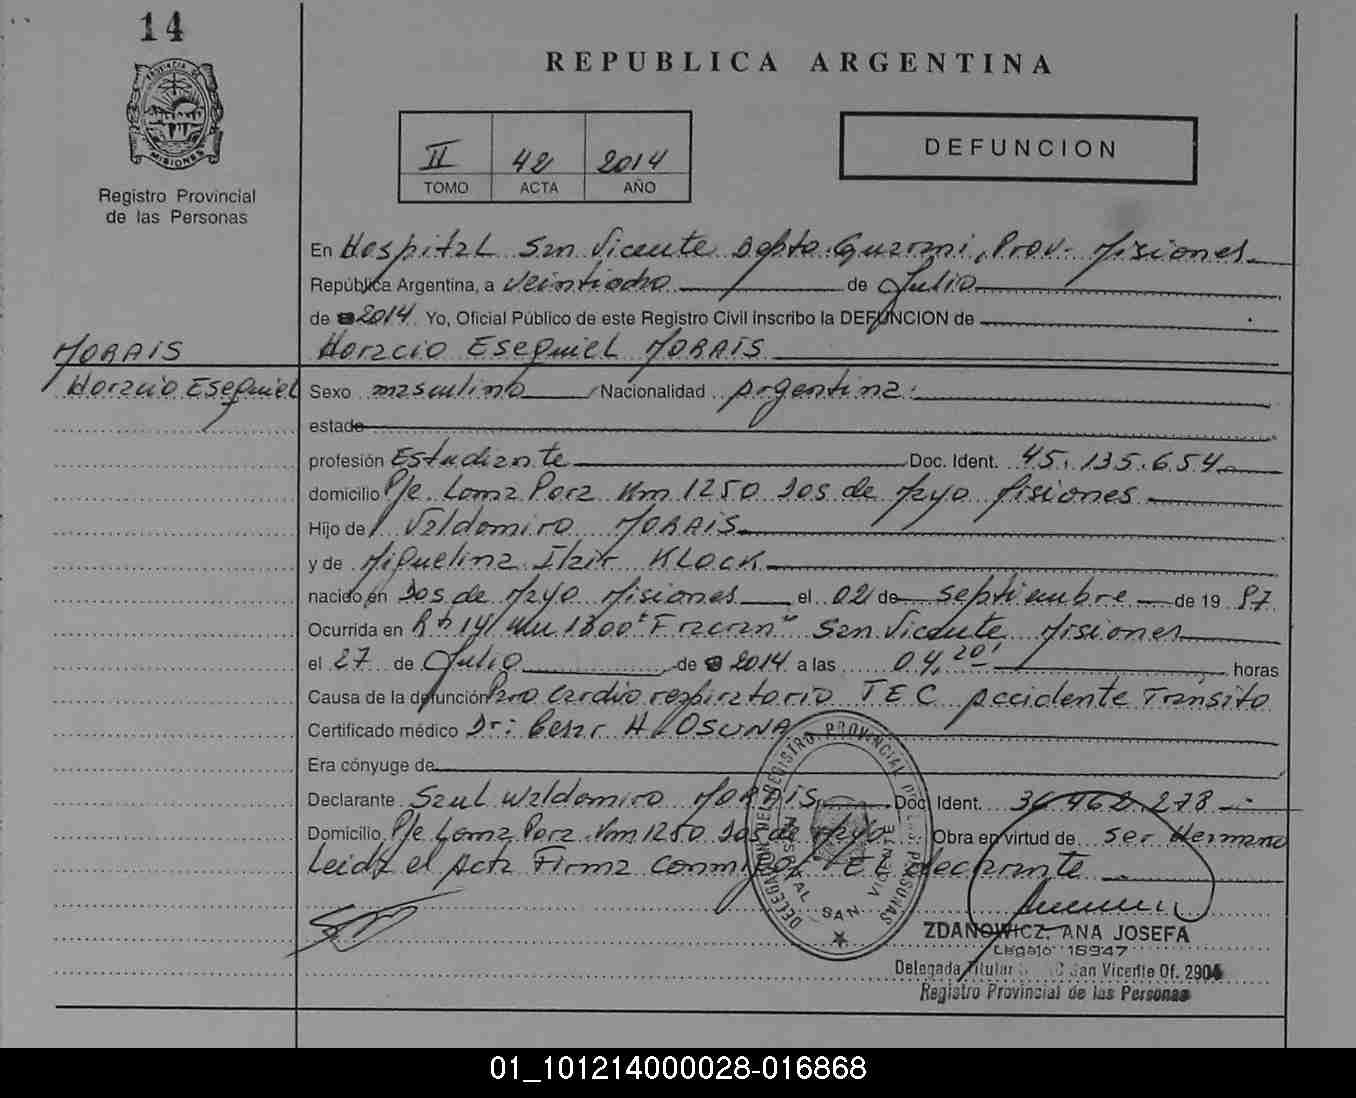 14
PROVINCIA DE
MISIONES
Registro Provincial
de las Personas
REPUBLICA ARGENTINA
II 42 2014
TOMO ACTA AÑO
DEFUNCION
En Hospital San Vicente Depto. Guarani, Prov. Misiones
República Argentina, a veintiocho de Julio
de 2014 Yo, Oficial Público de este Registro Civil inscribo la DEFUNCION de
MORAIS Horacio Esequiel MORAIS
Horacio Esequiel Sexo masculino Nacionalidad Argentina
estado
profesión Estudiante Doc. Ident. 45.135.654
domicilio Pje Loma Pora Km 1250 Dos de Mayo Misiones
Hijo de Valdomiro MORAIS
y de Miguelina KLOCK
nacido en Dos de Mayo Misiones el 02 de septiembre de 19 97
Ocurrida en km 1300 "Fracran" San Vicente Misiones
el 27 de Julio de 2014 a las 04,20' horas
Causa de la defunción Paro cardio respiratorio TEC Accidente Transito
Certificado médico Dr: Cesar A. OSUNA
Era cónyuge de
Declarante Saul Waldomiro MORAIS Doc. Ident. 36.462.278
Domicilio Pje Loma Pora Km 1250 Dos de Mayo Obra en virtud de ser Hermano
Leida el Acta Firma conmigo EL declarante
DELEGACION DEL REGISTRO PROVINCIAL DE LAS PERSONAS
HOSPITAL SAN VICENTE
ZDANOWICZ, ANA JOSEFA
Legajo 15947
Delegada Titular San Vicente Of. 2904
Registro Provincial de las Personas
01_101214000028-016868